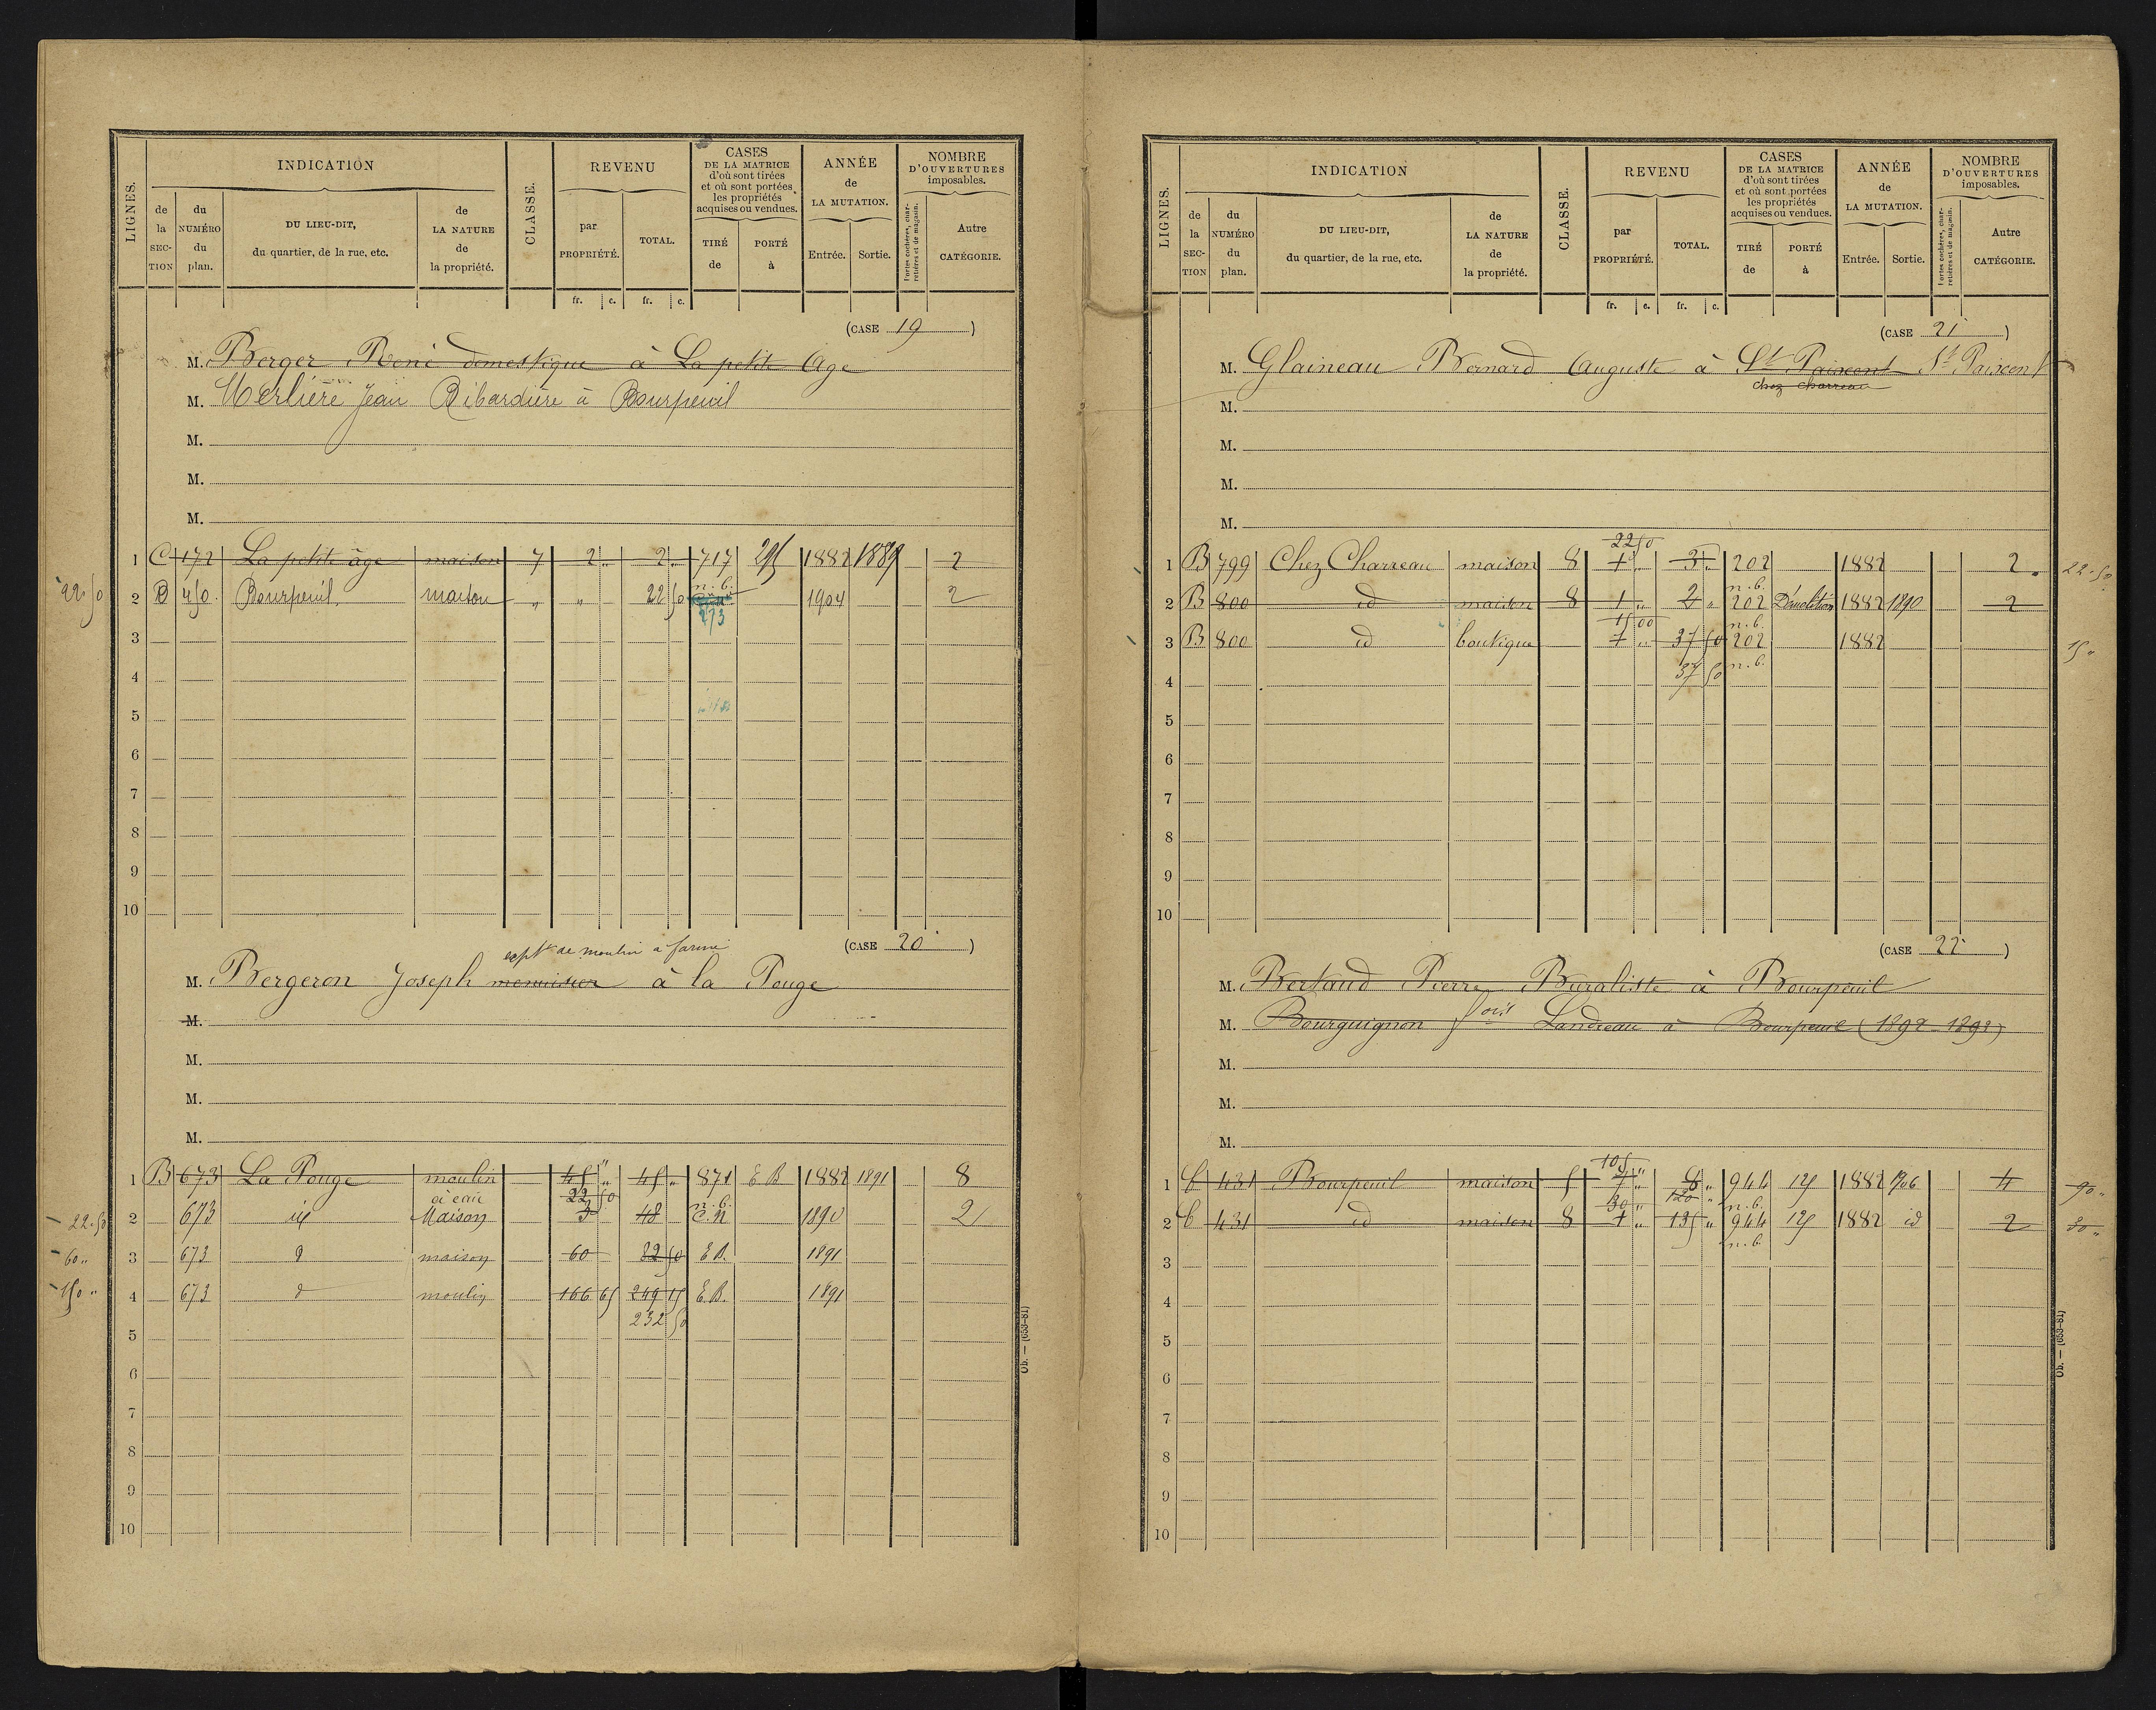 LIGNES. INDICATION CLASSE. REVENU CASES DE LA MATRICE d'où sont tirées et où sont portées les propriétés acquises ou vendues. ANNÉE de LA MUTATION. NOMBRE D'OUVERTURES imposables.
de la SECTION du NUMÉRO du plan. DU LIEU-DIT, du quartier, de la rue, etc. de LA NATURE de la propriété. par PROPRIÉTÉ. TOTAL. TIRÉ de PORTÉ à Entrée. Sortie. Portes cochères, charretières et de magasin. Autre CATÉGORIE.
fr. c. fr. c.
(CASE 19)
M. Berger René domestique à La petite Age
M. Merlière Jean Ribardière à Bourpeuil
M.
M.
M.
1 C 172 La petite âge maison 7 2 " 2 " 717 295 1882 1889 2
n.b.
22.50 2 B 450 Bourpeuil maison " " 22 50 1904 2
273
3
4
5
6
7
8
9
10
(CASE 20)
expt de moulin a farine
M. Bergeron Joseph menuisier à la Pouge
M.
M.
M.
M.
1 B 673 La Pouge moulin à eau 45 " 45 " 871 E B 1882 1891 8
22 50 n.b.
22.50 2 673 id Maison 3 48 C.N 1890 2
60 " 3 673 d maison 60 82 50 E B. 1891
150 " 4 673 d moulin 166 65 249 15 E.B. 1891
232 50
5
6
7
8
9
10
Ob. — (653-81)
LIGNES. INDICATION CLASSE. REVENU CASES DE LA MATRICE d'où sont tirées et où sont portées les propriétés acquises ou vendues. ANNÉE de LA MUTATION. NOMBRE D'OUVERTURES imposables.
de la SECTION du NUMÉRO du plan. DU LIEU-DIT, du quartier, de la rue, etc. de LA NATURE de la propriété. par PROPRIÉTÉ. TOTAL. TIRÉ de PORTÉ à Entrée. Sortie. Portes cochères, charretières et de magasin. Autre CATÉGORIE.
fr. c. fr. c.
(CASE 21)
M. Glaineau Bernard Auguste à St Paixent St Paixent
chez charreau
M.
M.
M.
M.
22 50
1 B 799 Chez Charreau maison 8 1 " 3 " 202 1882 2 22.50
n.b.
2 B 800 id maison 8 1 " 2 " 202 Démolition 1882 1890 2
15 00 n.b.
3 B 800 id boutique 1 " 37 50 202 1882 15 "
37 50 n.b.
4
5
6
7
8
9
10
(CASE 22)
M. Bertaud Pierre Buraliste à Bourpeuil
M. Bourguignon fois Landreau à Bourpeuil (1892-1893)
M.
M.
M.
105 "
1 C 431 Bourpeuil maison 5 7 " 8 " 944 125 1882 1906 4 90 "
30 " 120 " n.b.
2 C 431 id maison 8 1 " 135 " 944 125 1882 id 2 30 "
n.b.
3
4
5
6
7
8
9
10
Ob. — (653-81)